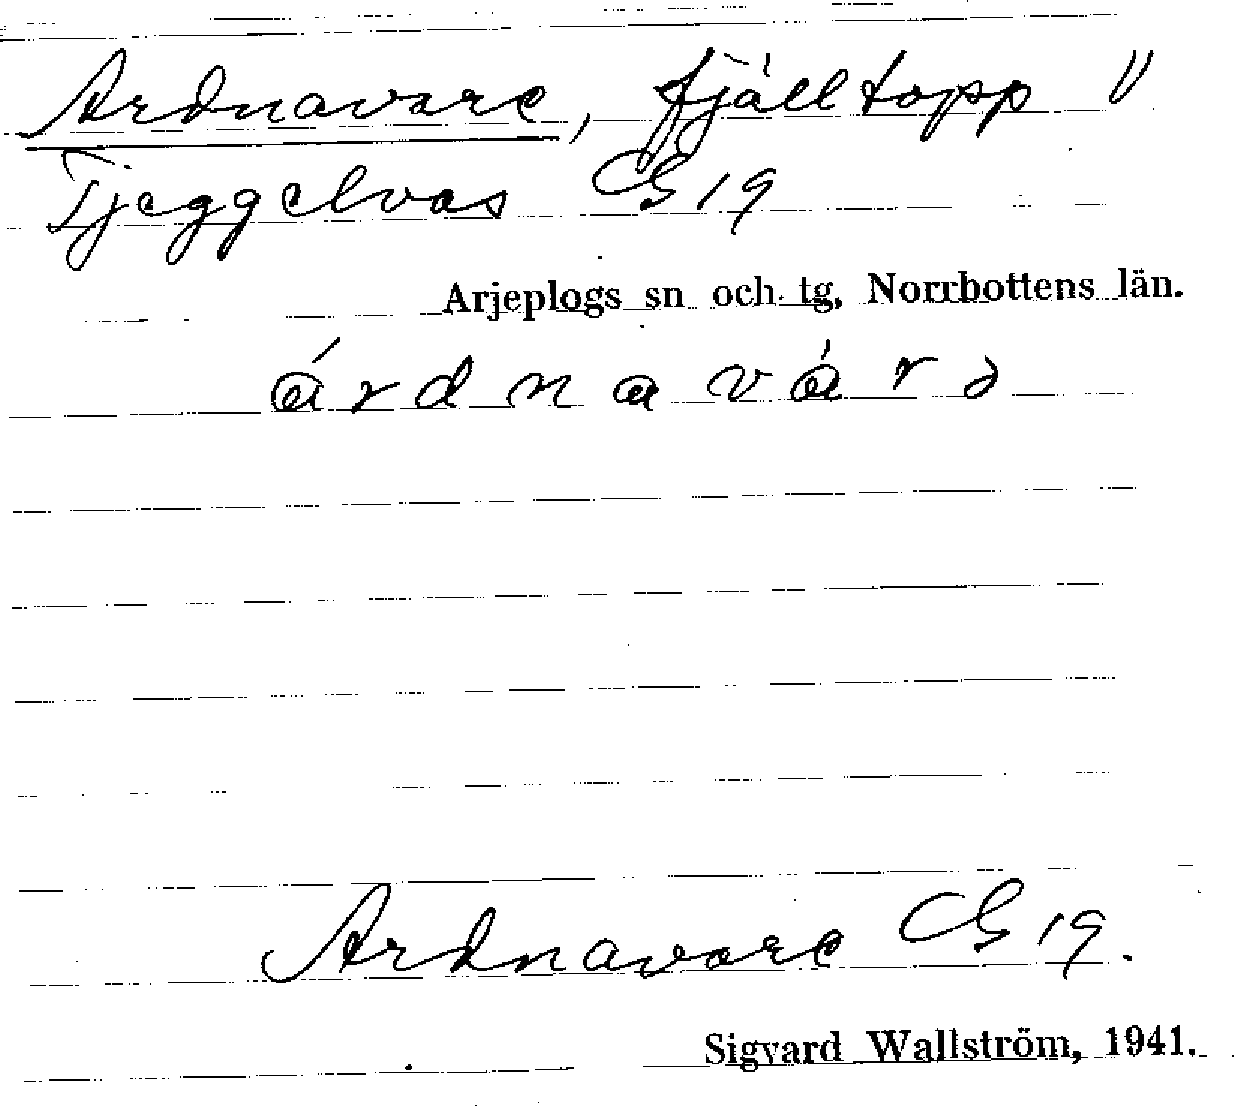 Ardnavare, fjälltopp V
Tjeggelvas CG 19
Arjeplogs sn och tg, Norrbottens län.
á r d n a v á r ə
Ardnavare CG 19.
Sigvard Wallström, 1941.